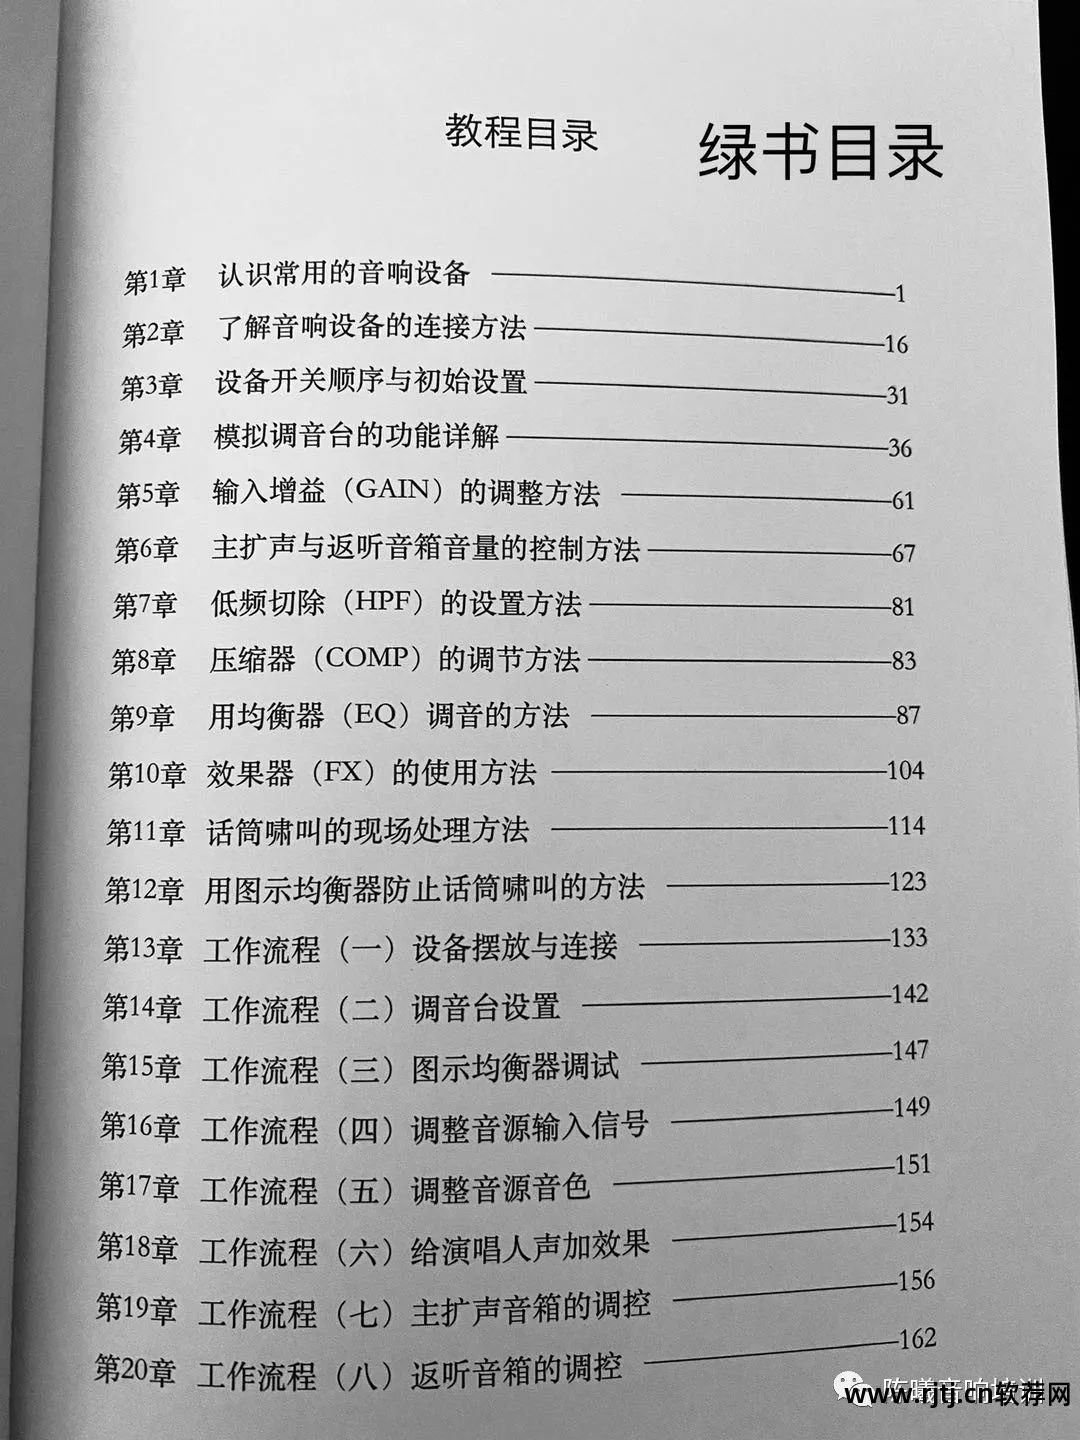 教程目录 绿书目录
第1章 认识常用的音响设备 1
第2章 了解音响设备的连接方法 16
第3章 设备开关顺序与初始设置 31
第4章 模拟调音台的功能详解 36
第5章 输入增益（GAIN）的调整方法 61
第6章 主扩声与返听音箱音量的控制方法 67
第7章 低频切除（HPF）的设置方法 81
第8章 压缩器（COMP）的调节方法 83
第9章 用均衡器（EQ）调音的方法 87
第10章 效果器（FX）的使用方法 104
第11章 话筒啸叫的现场处理方法 114
第12章 用图示均衡器防止话筒啸叫的方法 123
第13章 工作流程（一）设备摆放与连接 133
第14章 工作流程（二）调音台设置 142
第15章 工作流程（三）图示均衡器调试 147
第16章 工作流程（四）调整音源输入信号 149
第17章 工作流程（五）调整音源音色 151
第18章 工作流程（六）给演唱人声加效果 154
第19章 工作流程（七）主扩声音箱的调控 156
第20章 工作流程（八）返听音箱的调控 162
陈曦音响培训
www.rjtj.cn软荐网